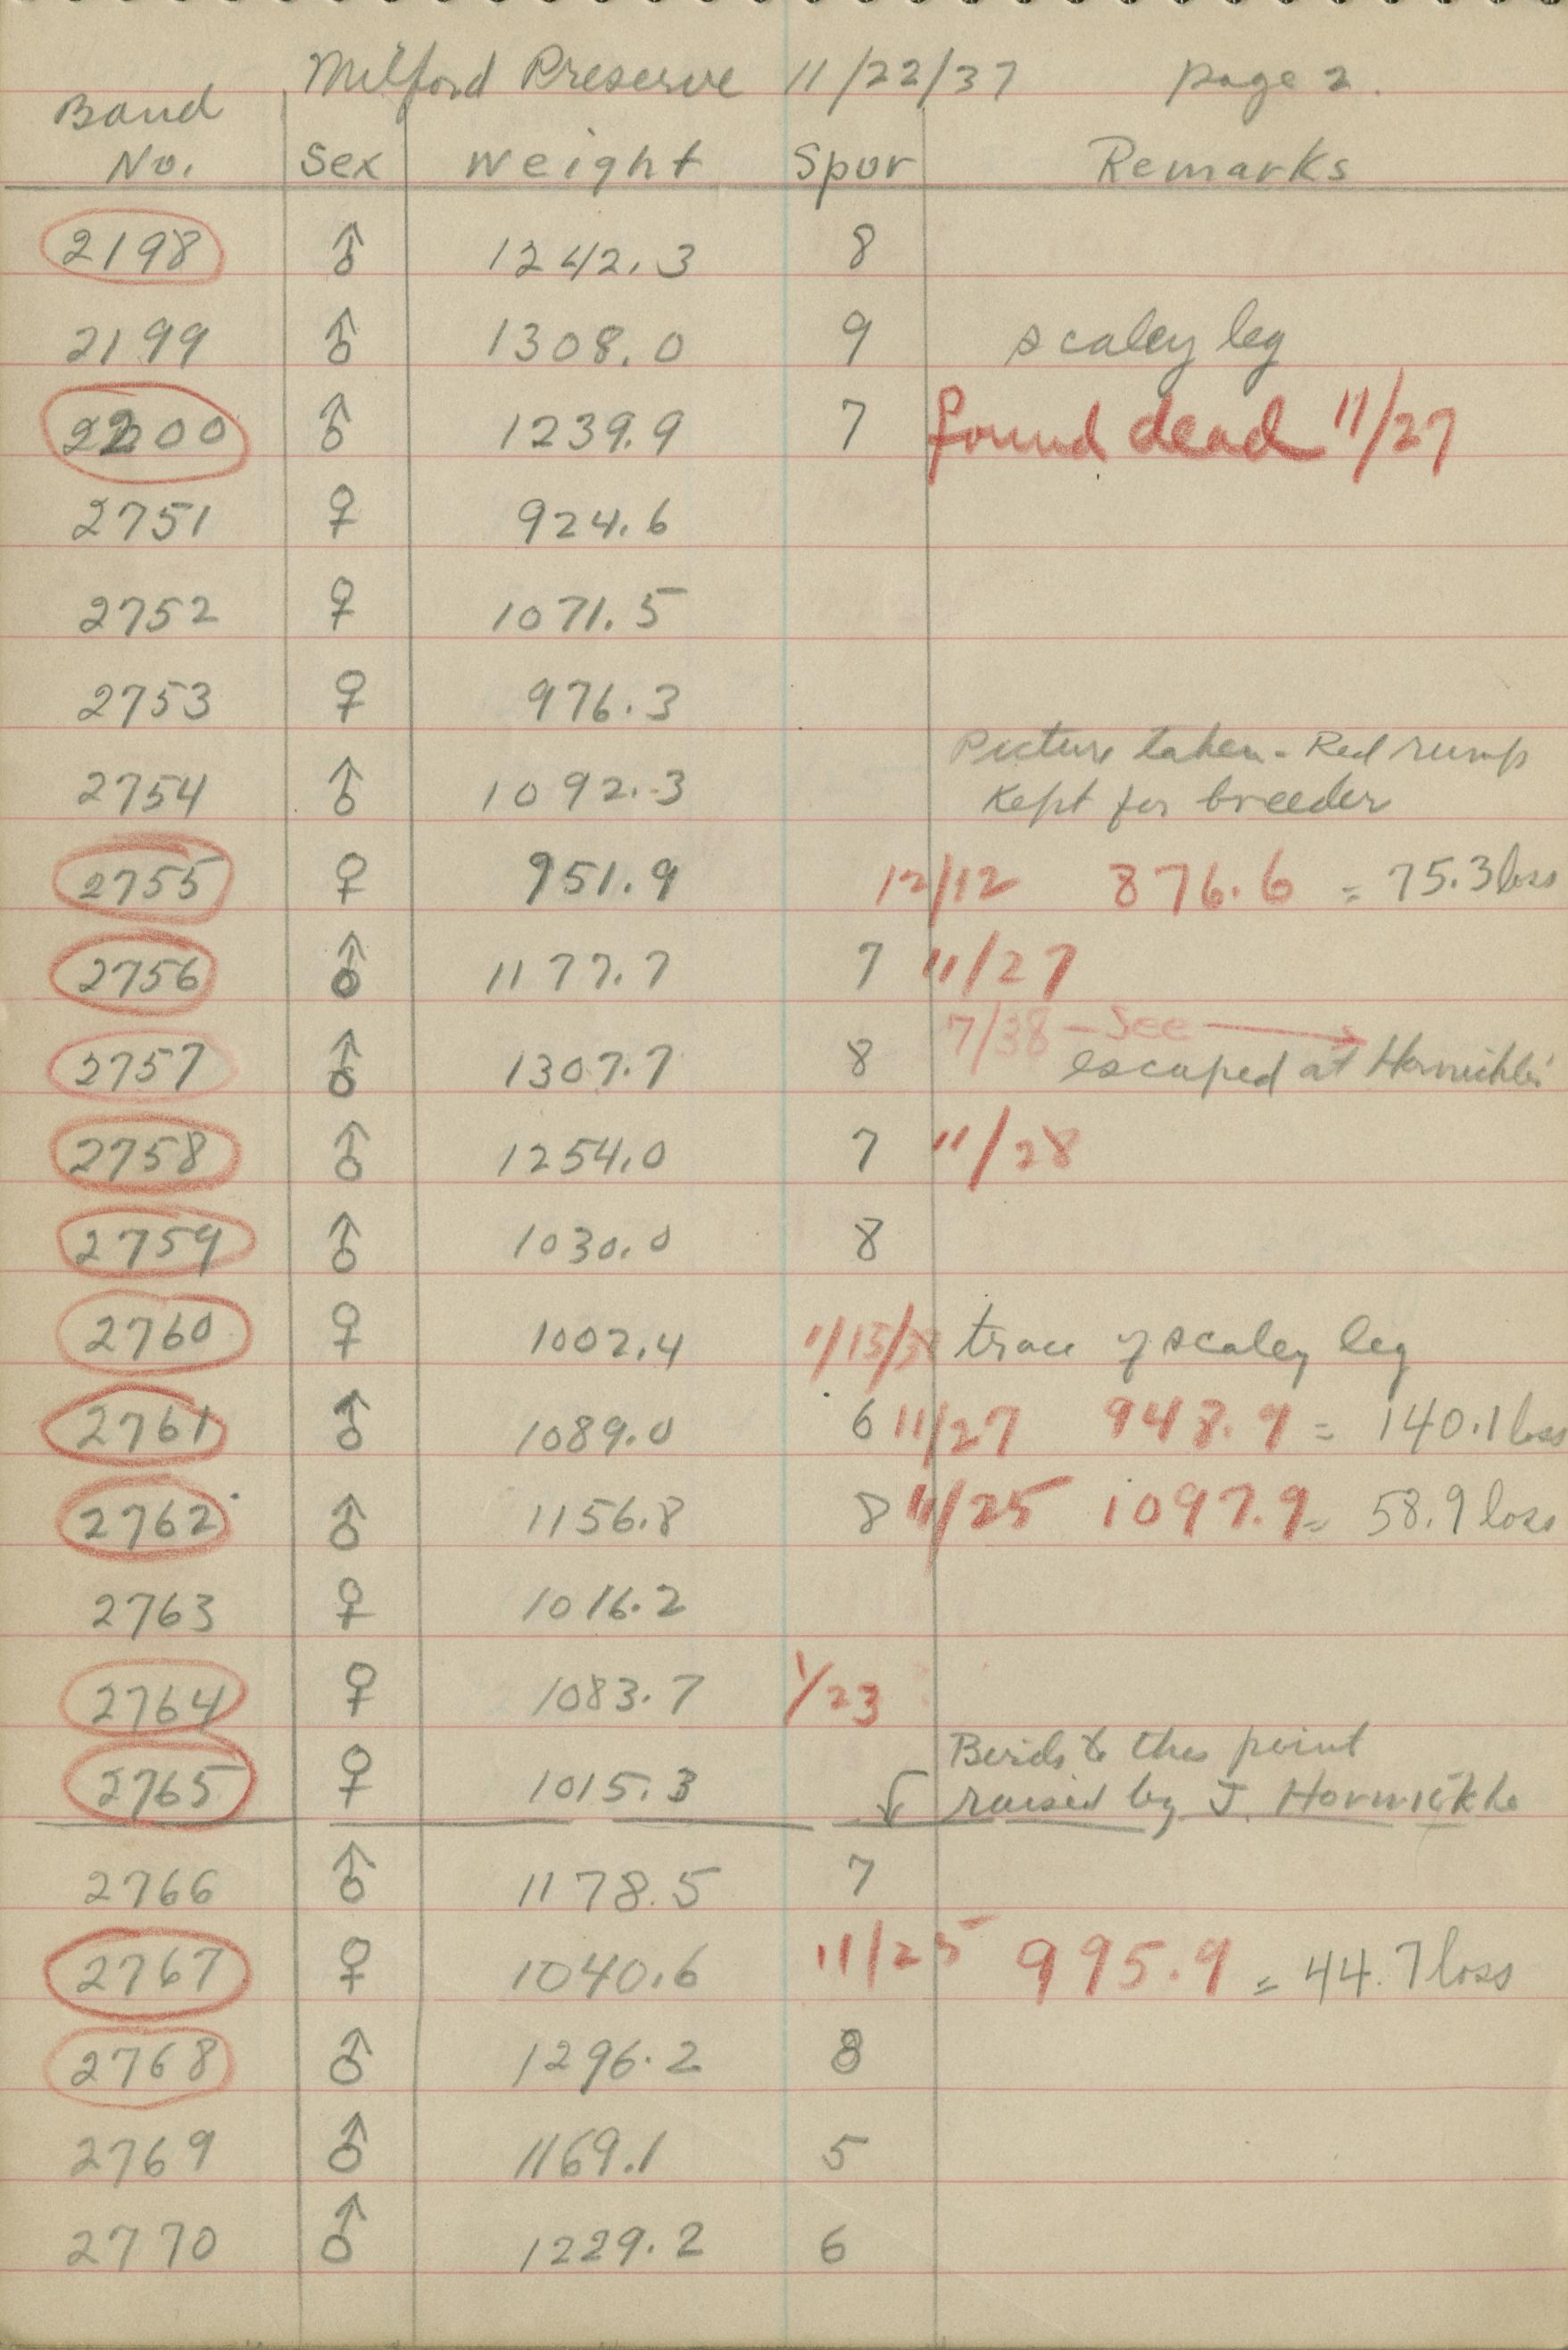 Milford Preserve 11/22/37 page 2.
Band
No. Sex Weight Spur Remarks
2198 ♂ 1242.3 8
2199 ♂ 1308.0 9 scaley leg
2200 ♂ 1239.9 7 found dead 11/27
2751 ♀ 924.6
2752 ♀ 1071.5
2753 ♀ 976.3
Picture taken - Red rump
2754 ♂ 1092.3 Kept for breeder
2755 ♀ 951.9 12/12 876.6 = 75.3 loss
2756 ♂ 1177.7 7 11/27
7/38 - See →
2757 ♂ 1307.7 8 escaped at
2758 ♂ 1254.0 7 11/28
2759 ♂ 1030.0 8
2760 ♀ 1002.4 11/15/38 trace of scaley leg
2761 ♂ 1089.0 6 11/27 948.9 = 140.1 loss
2762 ♂ 1156.8 8 11/25 1097.9 = 58.9 loss
2763 ♀ 1016.2
2764 ♀ 1083.7 1/23
Birds to this point
2765 ♀ 1015.3 raised by J.
2766 ♂ 1178.5 7
2767 ♀ 1040.6 11/25 995.9 = 44.7 loss
2768 ♂ 1296.2 8
2769 ♂ 1169.1 5
2770 ♂ 1229.2 6